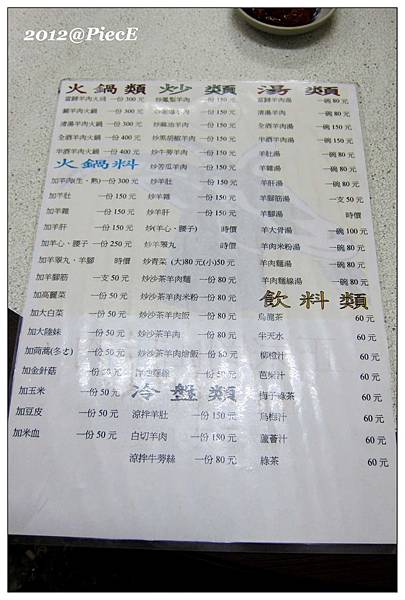 2012@PiecE
火鍋類
當歸羊肉火鍋 一份 300 元
羊肉火鍋 一份 300 元
清湯羊肉火鍋 一份 300 元
全酒羊肉火鍋 一份 400 元
半酒羊肉火鍋 一份 400 元
火鍋料
加羊肉(生、熟) 一份 300 元
加羊肚 一份 150 元
加羊雜 一份 150 元
加羊肝 一份 150 元
加羊心、腰子 一份 250 元
加羊睪丸、羊腳 時價
加羊腳筋 一支 50 元
加高麗菜 一份 50 元
加大白菜 一份 50 元
加大陸妹 一份 50 元
加茼蒿(冬ㄜ) 一份 50 元
加金針菇 一份 50 元
加玉米 一份 50 元
加豆皮 一份 50 元
加米血 一份 50 元
炒類
羊肉 一份 150 元
羊肉 一份 150 元
炒麻油羊肉 一份 150 元
炒黑胡椒羊肉 一份 150 元
炒牛蒡羊肉 一份 150 元
炒苦瓜羊肉 一份 150 元
炒羊肚 一份 150 元
炒羊雜 一份 150 元
炒羊肝 一份 150 元
炒(羊心、腰子) 時價
炒羊睪丸 時價
炒青菜 (大)80 元(小)50 元
炒沙茶羊肉麵 一份 80 元
炒沙茶羊肉米粉 一份 80 元
炒沙茶羊肉飯 一份 80 元
炒沙茶羊肉 一份 80 元
炒沙茶羊肉燴飯 一份 80 元
麵線 一份 50 元
冷盤類
涼拌羊肚 一份 150 元
白切羊肉 一份 150 元
涼拌牛蒡絲 一份 80 元
湯類
當歸羊肉湯 一碗 80 元
清湯羊肉 一碗 80 元
全酒羊肉湯 一碗 150 元
半酒羊肉湯 一碗 150 元
羊肚湯 一碗 80 元
羊雜湯 一碗 80 元
羊肝湯 一碗 80 元
羊腳筋湯 一支 50 元
羊腳湯 時價
羊大骨湯 一碗 100 元
羊肉米粉湯 一碗 80 元
羊肉麵湯 一碗 80 元
羊肉麵線湯 一碗 80 元
飲料類
烏龍茶 60 元
半天水 60 元
柳橙汁 60 元
芭樂汁 60 元
梅子綠茶 60 元
烏梅汁 60 元
蘆薈汁 60 元
綠茶 60 元